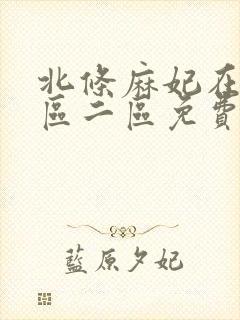 北條麻妃在
區二區免費
藍原夕妃